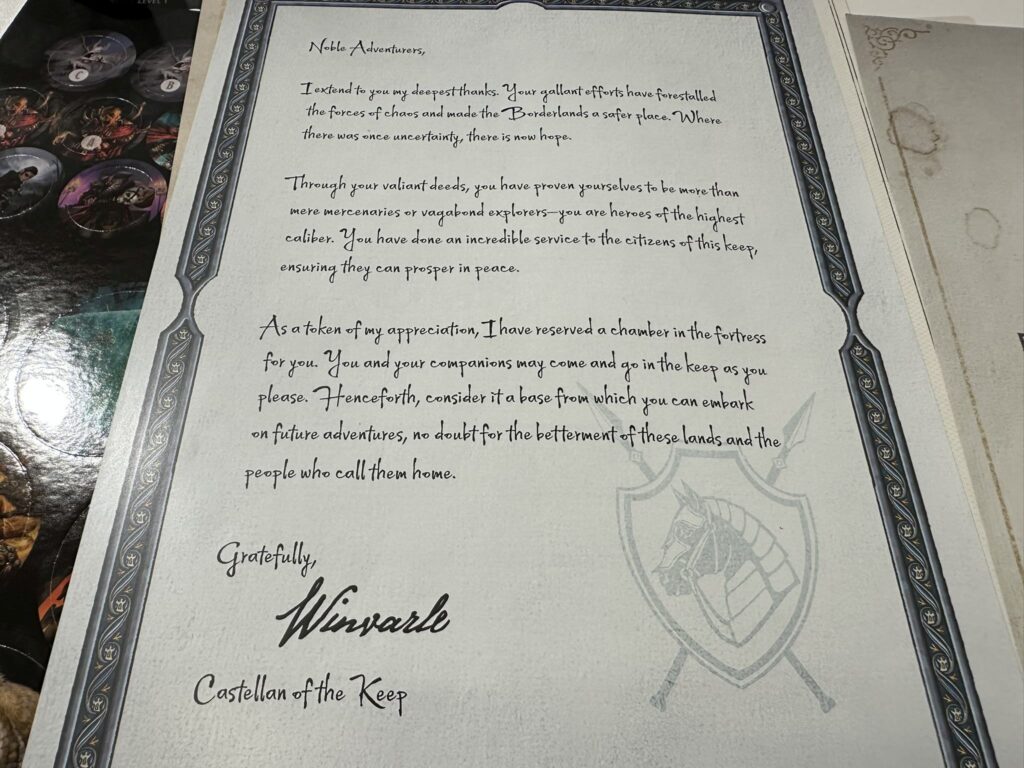 LEVEL 1
C
B
A
Noble Adventurers,
I extend to you my deepest thanks. Your gallant efforts have forestalled
the forces of chaos and made the Borderlands a safer place. Where
there was once uncertainty, there is now hope.
Through your valiant deeds, you have proven yourselves to be more than
mere mercenaries or vagabond explorers—you are heroes of the highest
caliber. You have done an incredible service to the citizens of this keep,
ensuring they can prosper in peace.
As a token of my appreciation, I have reserved a chamber in the fortress
for you. You and your companions may come and go in the keep as you
please. Henceforth, consider it a base from which you can embark
on future adventures, no doubt for the betterment of these lands and the
people who call them home.
Gratefully,
Winvarle
Castellan of the Keep